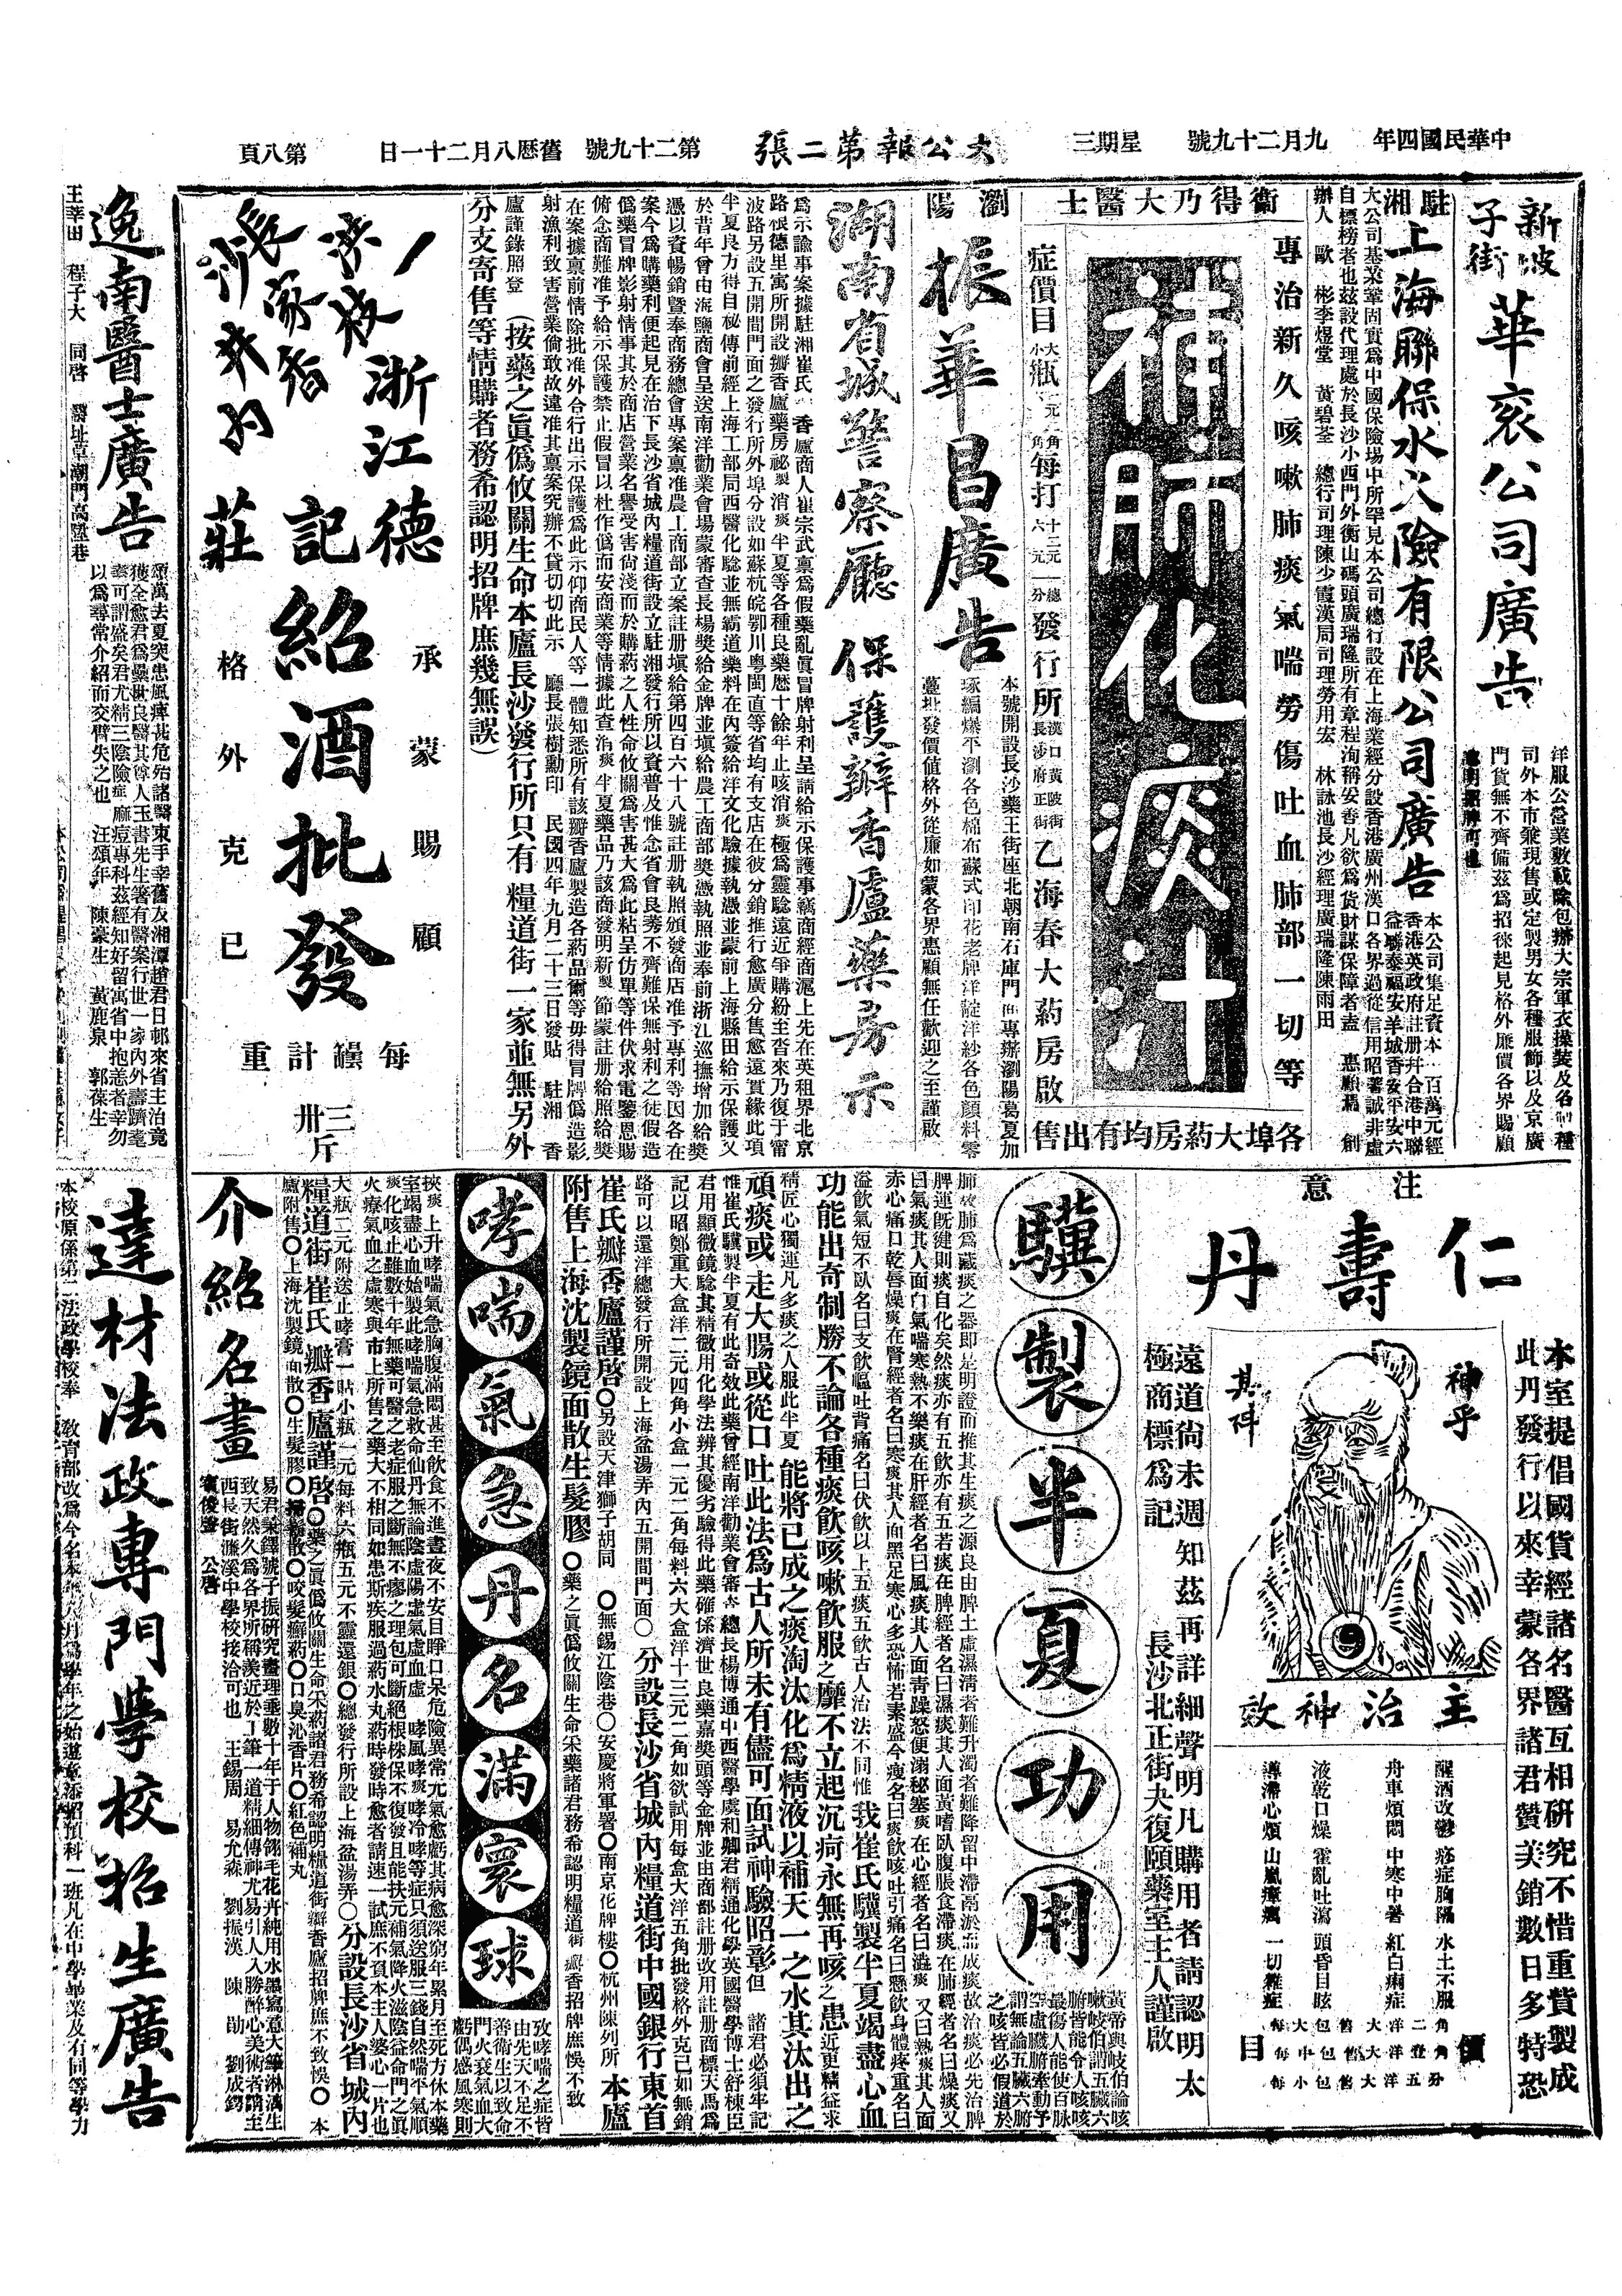 中華民國四年
九月二十九號
星期三
大公報第二張
第二十九號
舊曆八月二十一日
第八頁
新坡子街
華袞公司廣告
洋服公營業數載除包辦大宗軍衣操裝及各種
司外本市兼現售或定製男女各種服飾以及京廣
門貨無不齊備茲為招徠起見格外廉價各界賜顧
駐湘上海聯保水火險有限公司廣告
本公司集足資本一百萬元經
香港英政府註册幷合港中聯
益聯泰福安羊城香安平安六
大公司基業鞏固實為中國保險場中所罕見本公司總行設在上海業經分設香港廣州漢口各界過從信用昭著誠非虛
自標榜者也茲設代理處於長沙小西門外衡山碼頭廣瑞隆所有章程洵稱妥善凡欲為貨財謀保障者盍 惠顧焉 創
辦人 歐 彬 李煜堂 黃碧荃 總行司理陳少霞漢局司理勞用宏 林詠池長沙經理廣瑞隆陳雨田
衞得乃大醫士
專治新久咳嗽肺痰氣喘勞傷吐血肺部一切等
補肺化痰汁
症價目
發行所
漢口黃陂街
長沙府正街
乙海春大药房啟
各埠大药房均有出售
瀏陽
振華昌廣告
本號開設長沙藥王街座北朝南石庫門面專辦瀏陽葛夏加
琢編爆平瀏各色棉布蘇式印花老牌洋靛洋紗各色顏料零
躉批發價值格外從廉如蒙各界惠顧無任歡迎之至謹啟
湖南省城警察廳 保護瓣香廬藥房示
為示諭事案據駐湘崔氏瓣香廬商人崔宗武稟為假藥亂眞冒牌射利呈請給示保護事竊商經商滬上先在英租界北京
路根德里寓所開設瓣香廬藥房祕製消痰半夏等各種良藥歷十餘年止咳消痰極為靈驗遠近爭購紛至沓來乃復于甯
波路另設五開間門面之發行所外埠分設如蘇杭皖鄂川粵閩直等省均有支店在彼分銷推行愈廣分售愈遠實緣此項
半夏良方得自秘傳前經上海工部局西醫化驗並無霸道藥料在內簽給洋文化驗據執憑並蒙前上海縣田給示保護又
於昔年曾由海鹽商會呈送南洋勸業會場蒙審查長楊獎給金牌並塡給農工商部獎憑執照並奉前浙江巡撫增加給獎
憑以資暢銷曁奉商務總會專案稟准農工商部立案註册塡給第四百六十八號註册執照頒發商店准予專利等因各在
案今為購藥利便起見在治下長沙省城內糧道街設立駐湘發行所以資普及惟念省會良莠不齊難保無射利之徒假造
偽藥冒牌影射情事其於商店營業名譽受害尙淺而於購药之人性命攸關為害甚大為此粘呈仿單等件伏求電鑒恩賜
俯念商難准予給示保護禁止假冒以杜作偽而安商業等情據此查消痰半夏藥品乃該商發明新製節蒙註册給照給獎
在案據稟前情除批准外合行出示保護為此示仰商民人等一體知悉所有該瓣香廬製造各药品爾等毋得冒牌偽造影
射漁利致害營業倘敢故違准其稟案究辦不貸切切此示 廳長張樹勳印 民國四年九月二十三日發貼 駐湘 香
廬謹錄照登 (按藥之眞偽攸關生命本廬長沙發行所只有糧道街一家並無另外
分支寄售等情購者務希認明招牌庶幾無誤)
浙江德記莊
紹酒批發
承蒙賜顧
格外克已
每罎計重
三卅斤
逸南醫士廣告
頌萬去夏突患風痺甚危殆諸醫束手幸舊友湘潭趙君日邨來省主治竟
獲全愈君為纍世良醫其尊人玉書先生箸有醫案行世一家內外壽躋耄
耋可謂盛矣君尤精三陰險症痲痘專科茲經知好留寓省中抱恙者幸勿
以為尋常介紹而交臂失之也 汪頌年 陳豪生 黃鹿泉 郭葆生
王莘田 程子大 同啓 醫址草潮門高墜巷
注意
仁壽丹
本室提倡國貨經諸名醫互相硏究不惜重貨製成
此丹發行以來幸蒙各界諸君贊美銷數日多特恐
神乎其神
主治神效
醒酒改鬱 痧症胸隔 水土不服
舟車煩悶 中寒中暑 紅白痢症
液乾口燥 霍亂吐瀉 頭昏目眩
導滯心煩 山嵐瘴癘 一切雜症
價目
每大包售大洋二角
每中包售大洋壹角
每小包售大洋五分
遠道尙未週知茲再詳細聲明凡購用者請認明太
極商標為記 長沙北正街夬復頤藥室主人謹啟
驥製半夏功用
黃帝與岐伯論咳
嗽岐伯謂五臟六
腑皆能令人咳咳
最傷人能使百脉
空虛臟腑牽動予
謂無論五臟六腑
之咳皆必假道於
肺故肺為藏痰之器即是明證而推其生痰之源良由脾土虛濕淸者難升濁者難降留中滯鬲瘀而成痰故治痰必先治脾
脾運旣健則痰自化矣然痰亦有五飲亦有五若痰在脾經者名曰濕痰其人面黃嗜臥腹脹食滯痰在肺經者名曰燥痰又
曰氣痰其人面白氣喘寒熱不樂痰在肝經者名曰風痰其人面青躁怒便溺秘塞痰在心經者名曰熱痰又曰熱痰其人面
赤心痛口乾唇燥痰在腎經者名曰寒痰其人面黑足寒心多恐怖若素盛今瘦名曰痰飲咳吐引痛名曰懸飲身體疼重名曰
溢飲氣短不臥名曰支飲嘔吐背痛名曰伏飲以上五痰五飲古人治法不同惟我崔氏驥製半夏竭盡心血
功能出奇制勝不論各種痰飲咳嗽飲服之靡不立起沉疴永無再咳之患近更精益求
精匠心獨運凡多痰之人服此半夏能將已成之痰淘汰化為精液以補天一之水其汰出之
頑痰或走大腸或從口吐此法為古人所未有儘可面試神驗昭彰但諸君必須牢記
惟崔氏驥製半夏有此奇效此藥曾經南洋勸業會審查總長楊博通中西醫學虞和卿君精通化學英國醫學博士舒棟臣
君用顯微鏡騐其精微用化學法辨其優劣驗得此藥確係濟世良藥嘉獎頭等金牌並由商部註册改用註册商標天馬為
記以昭鄭重大盒洋二元四角小盒一元二角每料六大盒洋十三元二角如欲試用每盒大洋五角批發格外克己如無銷
路可以還洋總發行所開設上海盆湯弄內五開間門面〇分設長沙省城內糧道街中國銀行東首
崔氏瓣香廬謹啓〇另設天津獅子胡同〇無錫江陰巷〇安慶將軍署〇南京花牌樓〇杭州陳列所 本廬
附售上海沈製鏡面散生髮膠〇藥之眞偽攸關生命采藥諸君務希認明糧道街瓣香招牌庶悞不致
哮喘氣急丹名滿寰球
攷哮喘之症皆
由先天不足不
善衛生以致命
門火衰氣血大
虧偶感風寒則
挾痰上升哮喘氣急胸腹滿悶甚至飲食不進晝夜不安目睜口呆危險異常尤氣愈虧其病愈深窮年累月至死方休本藥
室竭盡心血始製此哮喘氣急救命仙丹無論陰虛陽虛氣虛血虛哮風哮痰哮冷哮等症只須送服三錢自然喘平氣順
痰化咳止雖數十年無藥可醫之老症服之斷無不瘳之理包可斷絕根株保不復發且能扶元補氣降火滋陰益命門之眞
火療氣血之虛寒與市上所售之藥大不相同如患斯疾服過药水丸药時發時愈者請速一試庶不負本主人婆心一片也
大瓶二元附送止哮膏一貼小瓶一元每料六瓶五元不靈還銀〇總發行所設上海盆湯弄〇分設長沙省城內
糧道街崔氏瓣香廬謹啓〇藥之眞偽攸關生命采药諸君務希認明糧道街瓣香廬招牌庶不致悞〇本
廬附售〇上海沈製鏡面散〇生髮膠〇搽顏散〇咬髮癬药〇口臭沁香片〇紅色補丸
介紹名畫
易君秉鐸號子振研究畫理垂數十年于人物翎毛花卉純用水墨寫意大筆淋漓生
致天然久為各界所稱羡近於工筆一道精細傳神尤易引人入勝醉心美術者請至
西長街濂溪中學校接洽可也 王錫周 易允森 劉振漢 陳 劭 劉成鍔
公啓
達材法政專門學校招生廣告
本校原係第二法政學校奉 教育部改為今名